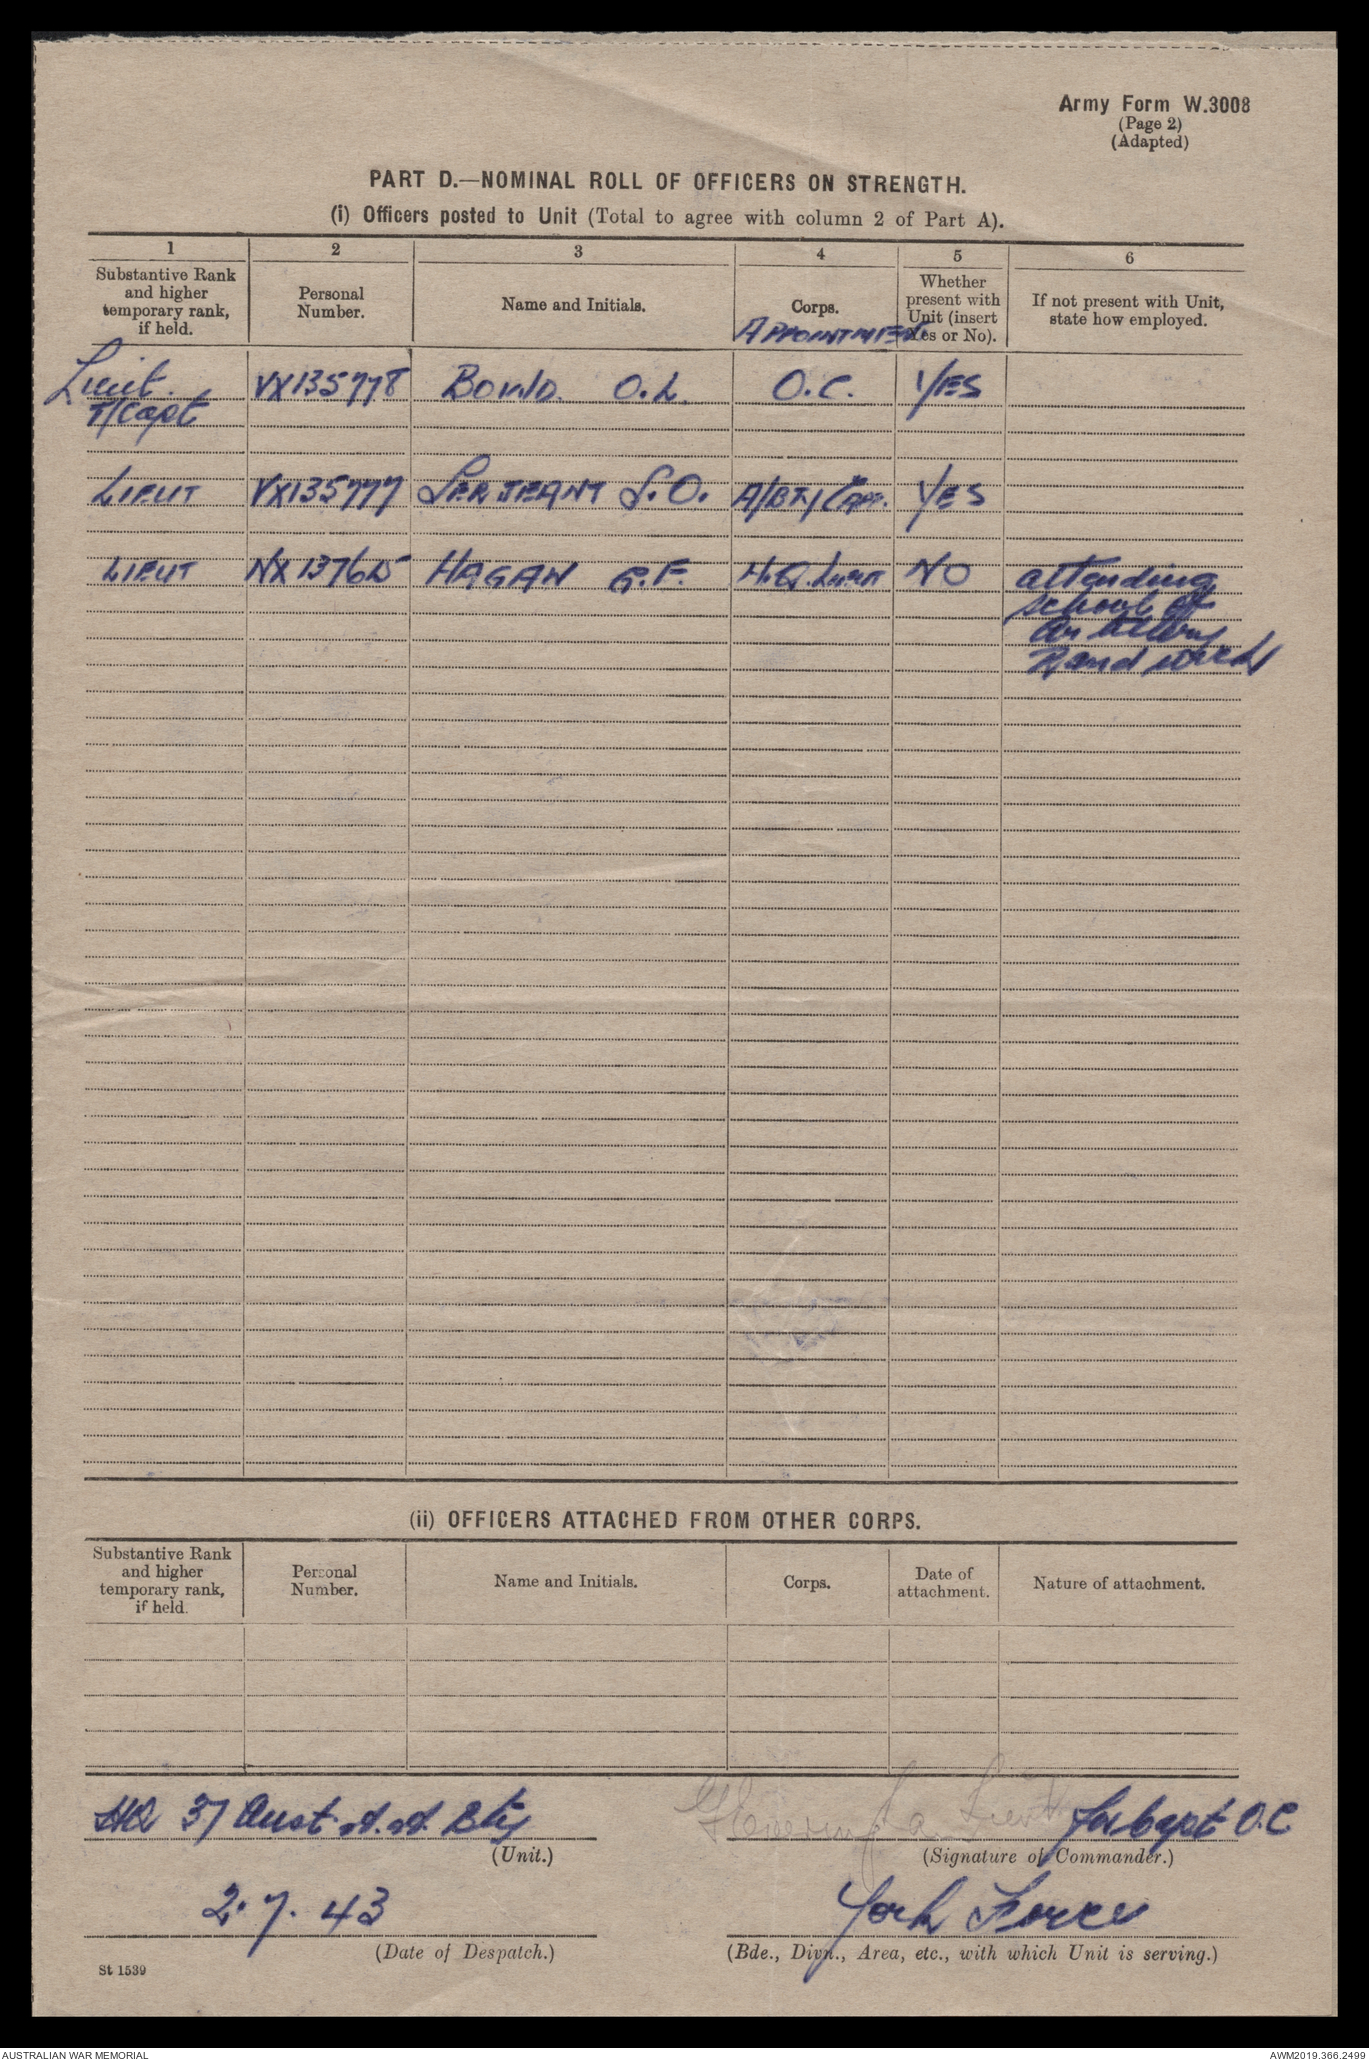 Army Form W.3008
(Page 2)
(Adapted)
PART D.—NOMINAL ROLL OF OFFICERS ON STRENGTH.
(i) Officers posted to Unit (Total to agree with column 2 of Part A).
1 2 3 4 5 6
Substantive Rank and higher temporary rank, if held.
Personal Number.
Name and Initials.
Corps.
APPOINTMENT
Whether present with Unit (insert Yes or No).
If not present with Unit, state how employed.
Lieut. VX135778 BOUND. O.L. O.C. YES
T/Capt
LIEUT VX135777 SERJEANT S.O. A/BTY/CAPT. YES
LIEUT HAGAN G.F. H.Q. NO attending
school of
artillery
Randwick
(ii) OFFICERS ATTACHED FROM OTHER CORPS.
Substantive Rank and higher temporary rank, if held.
Personal Number.
Name and Initials.
Corps.
Date of attachment.
Nature of attachment.
HQ 37 Aust. A.A. Bty
(Unit.)
Lieut for Capt O.C
(Signature of Commander.)
2.7.43
(Date of Despatch.)
York Force
(Bde., Divn., Area, etc., with which Unit is serving.)
St 1539
AUSTRALIAN WAR MEMORIAL
AWM2019.366.2499